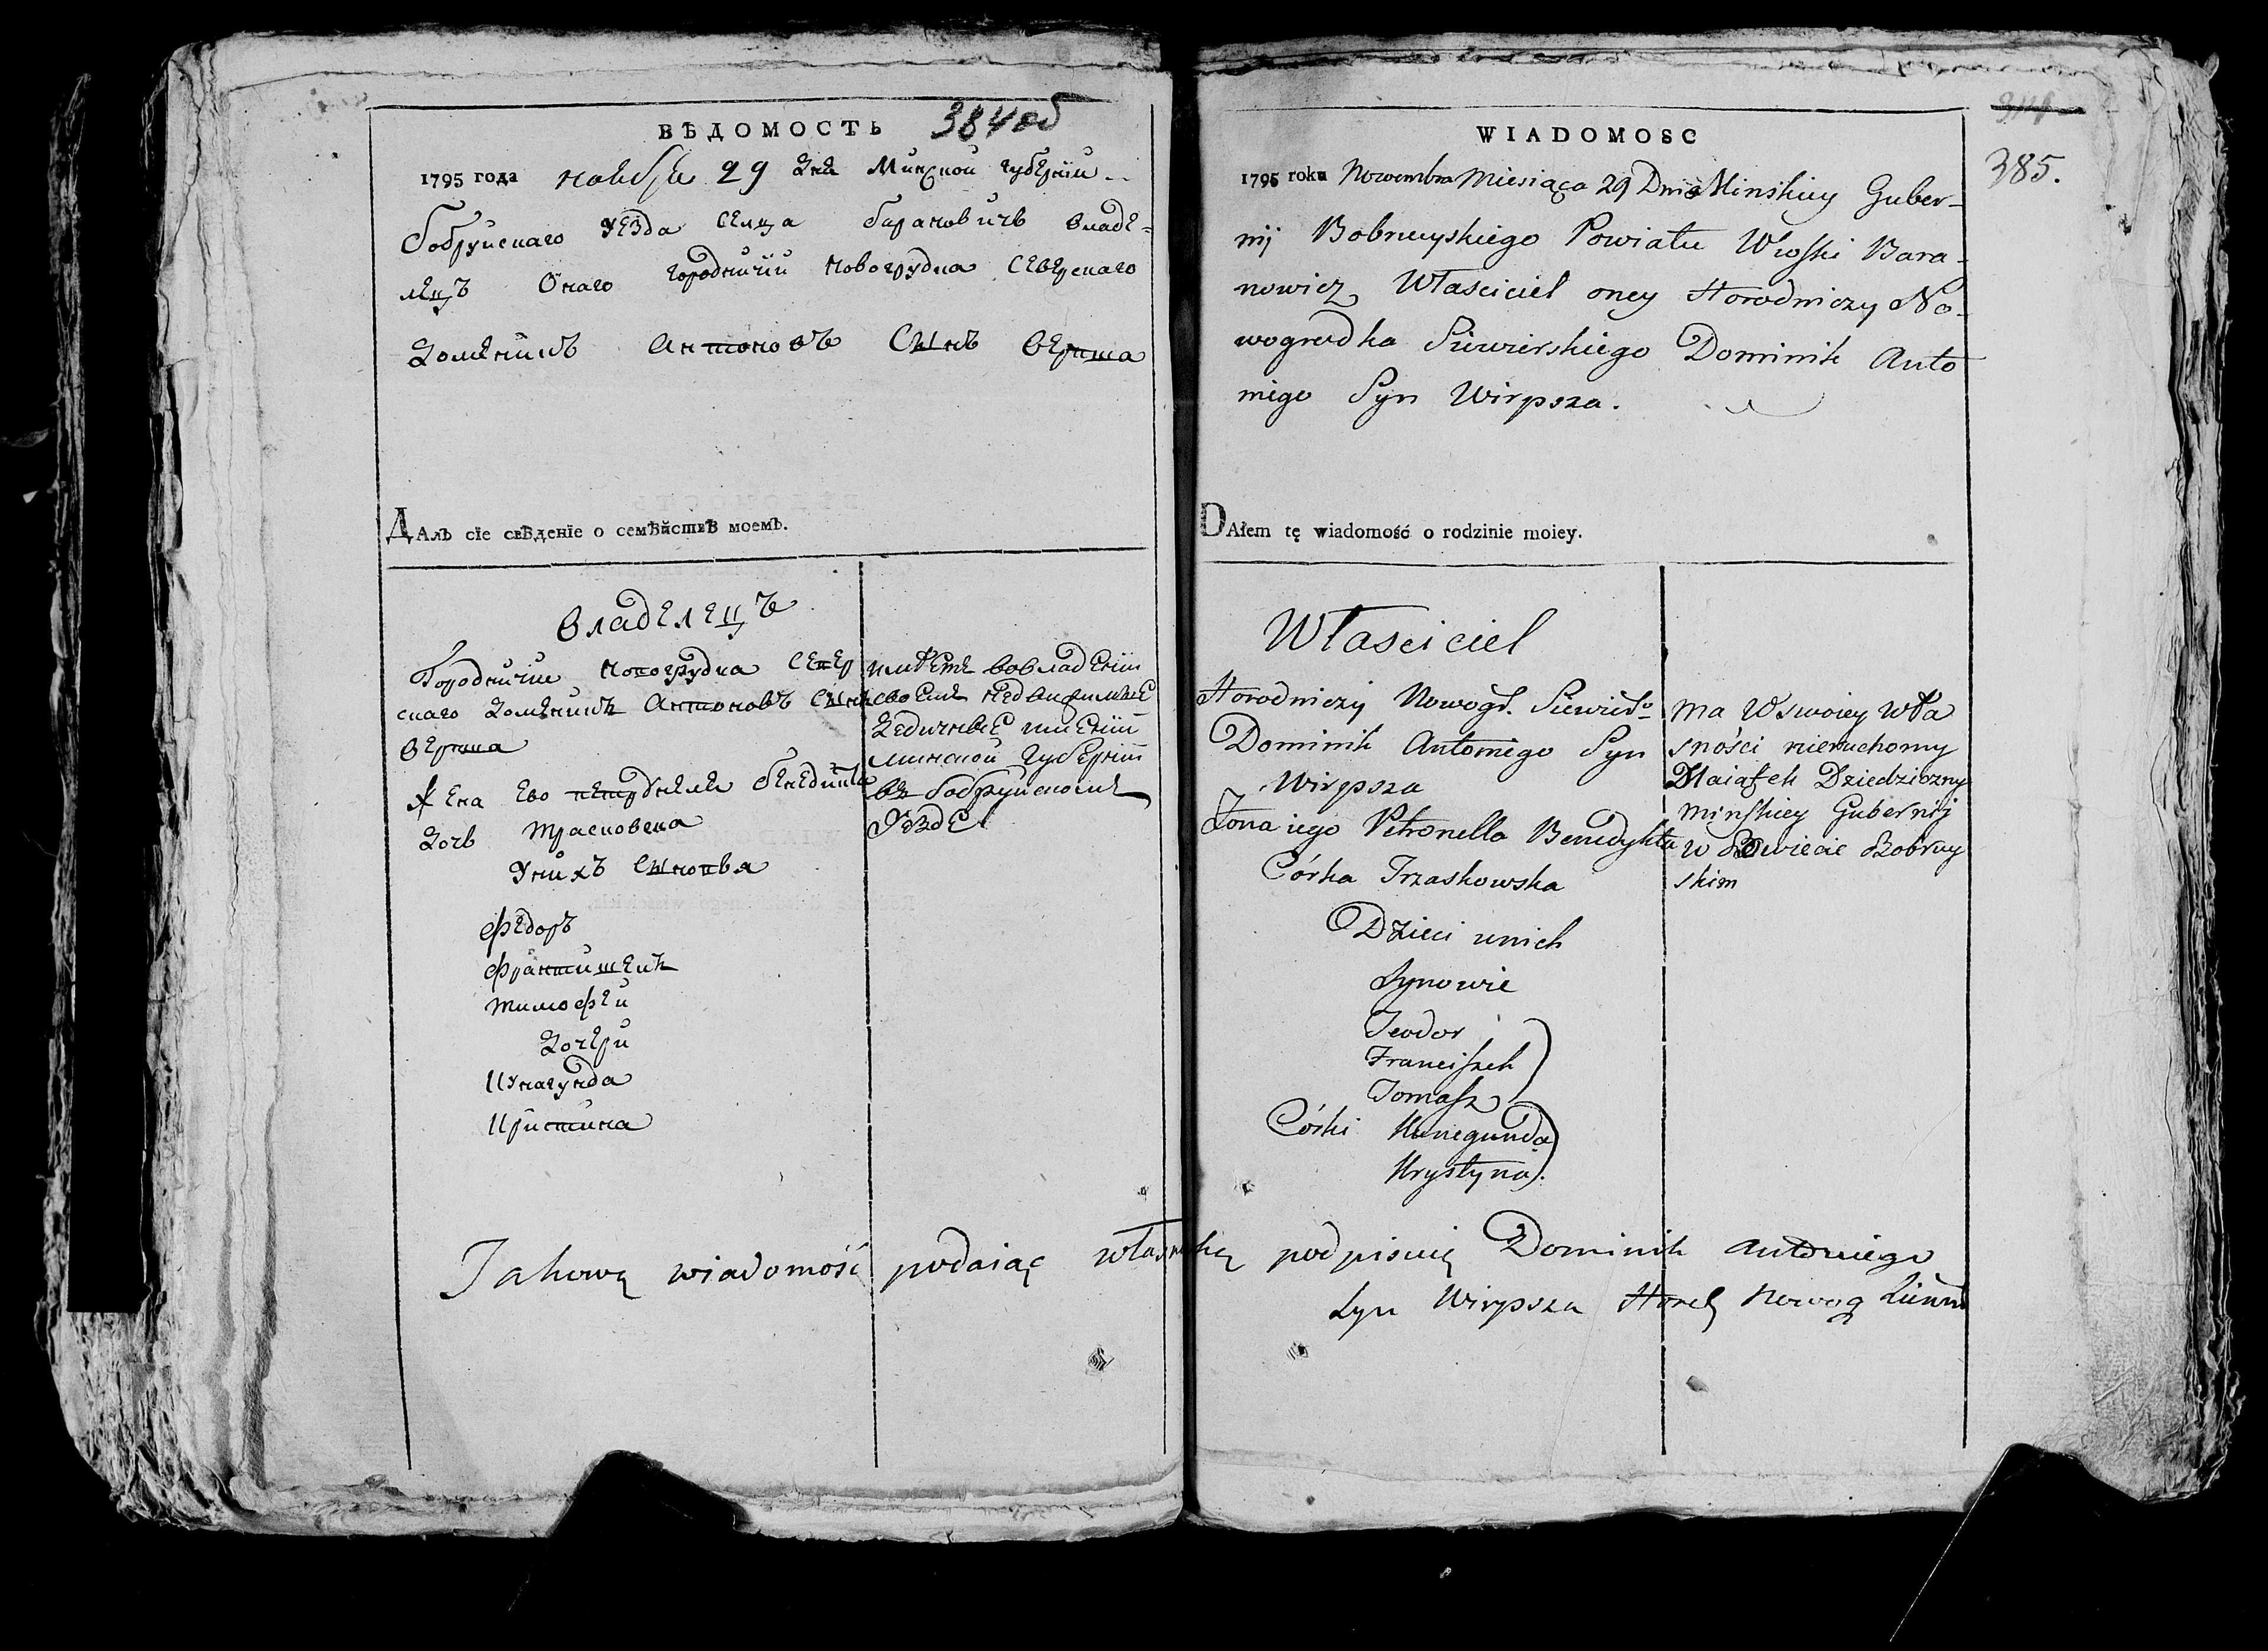 ВѢДОМОСТЬ 384 об
1795 года ноября 29 дня Минской губернии
бобруйскаго уезда селца барановичь владе-
лецъ Онаго городничий Новогрудка Северскаго
Доминикъ Антоновъ Сынъ Верпша
Далъ сїе свѣденїе о семѣйствѣ моемъ.
владелецъ
Городничий Новогрудка Север
скаго Доминикъ Антоновъ Сынъ
Верпша
Жена Ево Бенедикта
Дочь Трасковска
У них Сыновья
Федоръ
Францишекъ
Тимофей
Дочери
Кунагунда
Кристина
имеете вовладении
своемъ недвижимые
Дедичные имении
минской губернии
въ бобруйскомъ
Уезде
WIADOMOSC
385.
1795 roku Nowembra Miesiąca 29 Dnia Minskiey Guber-
nij Bobruyskiego Powiatu Wioski Bara-
nowicz Własciciel oney Horodniczy No-
wogrodka Siewierskiego Dominik Anto
niego Syn Wirpsza.
DAłem tę wiadomość o rodzinie moiey.
Własciciel
Horodniczy Nowogr. Siewiers
Dominik Antoniego Syn
Wirpsza
Żona iego Petronella Benedykta
Córka Trzaskowska
Dzieci unich
Synowie
Teodor
Franciszek
Tomasz
Córki Kunegunda
Krystyna.
Ma W swoiey wła
sności nieruchomy
Maiątek Dziedziczny
Minskiey Gubernij
w Powiecie Bobruy
skim
Takową wiadomość podaiąc własnoręką podpisuię Dominik Antoniego
Syn Wirpsza Nowog